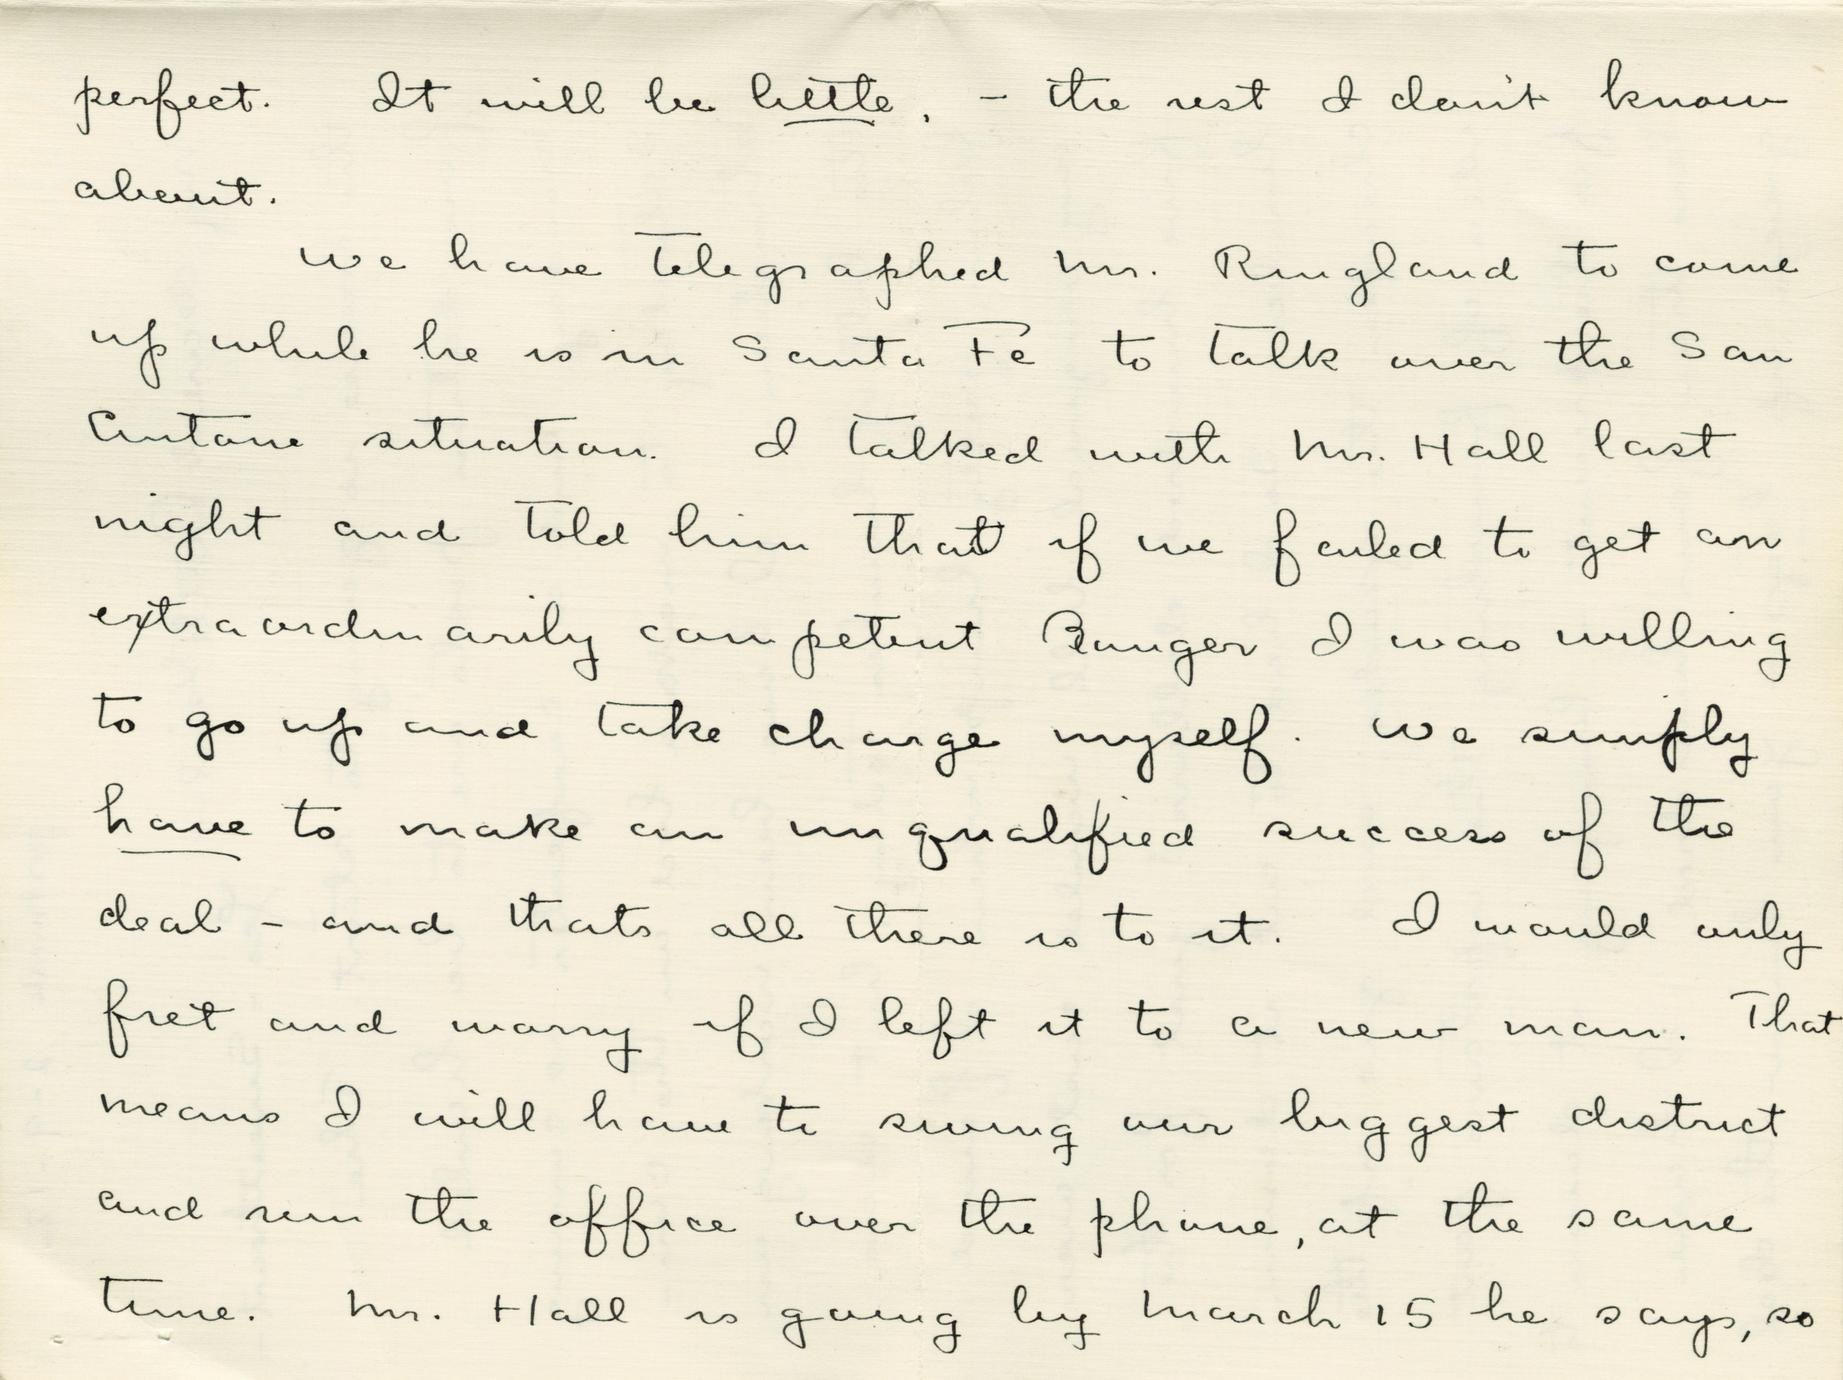 perfect. It will be little, - the rest I don't know
about.
We have telegraphed Mr. Ringland to come
up while he is in Santa Fe to talk over the San
Antone situation. I talked with Mr. Hall last
night and told him that if we failed to get an
extraordinarily competent Ranger I was willing
to go up and take charge myself. We simply
have to make an unqualified success of the
deal - and thats all there is to it. I would only
fret and worry if I left it to a new man. That
means I will have to swing our biggest district
and run the office over the phone, at the same
time. Mr. Hall is going by March 15 he says, so